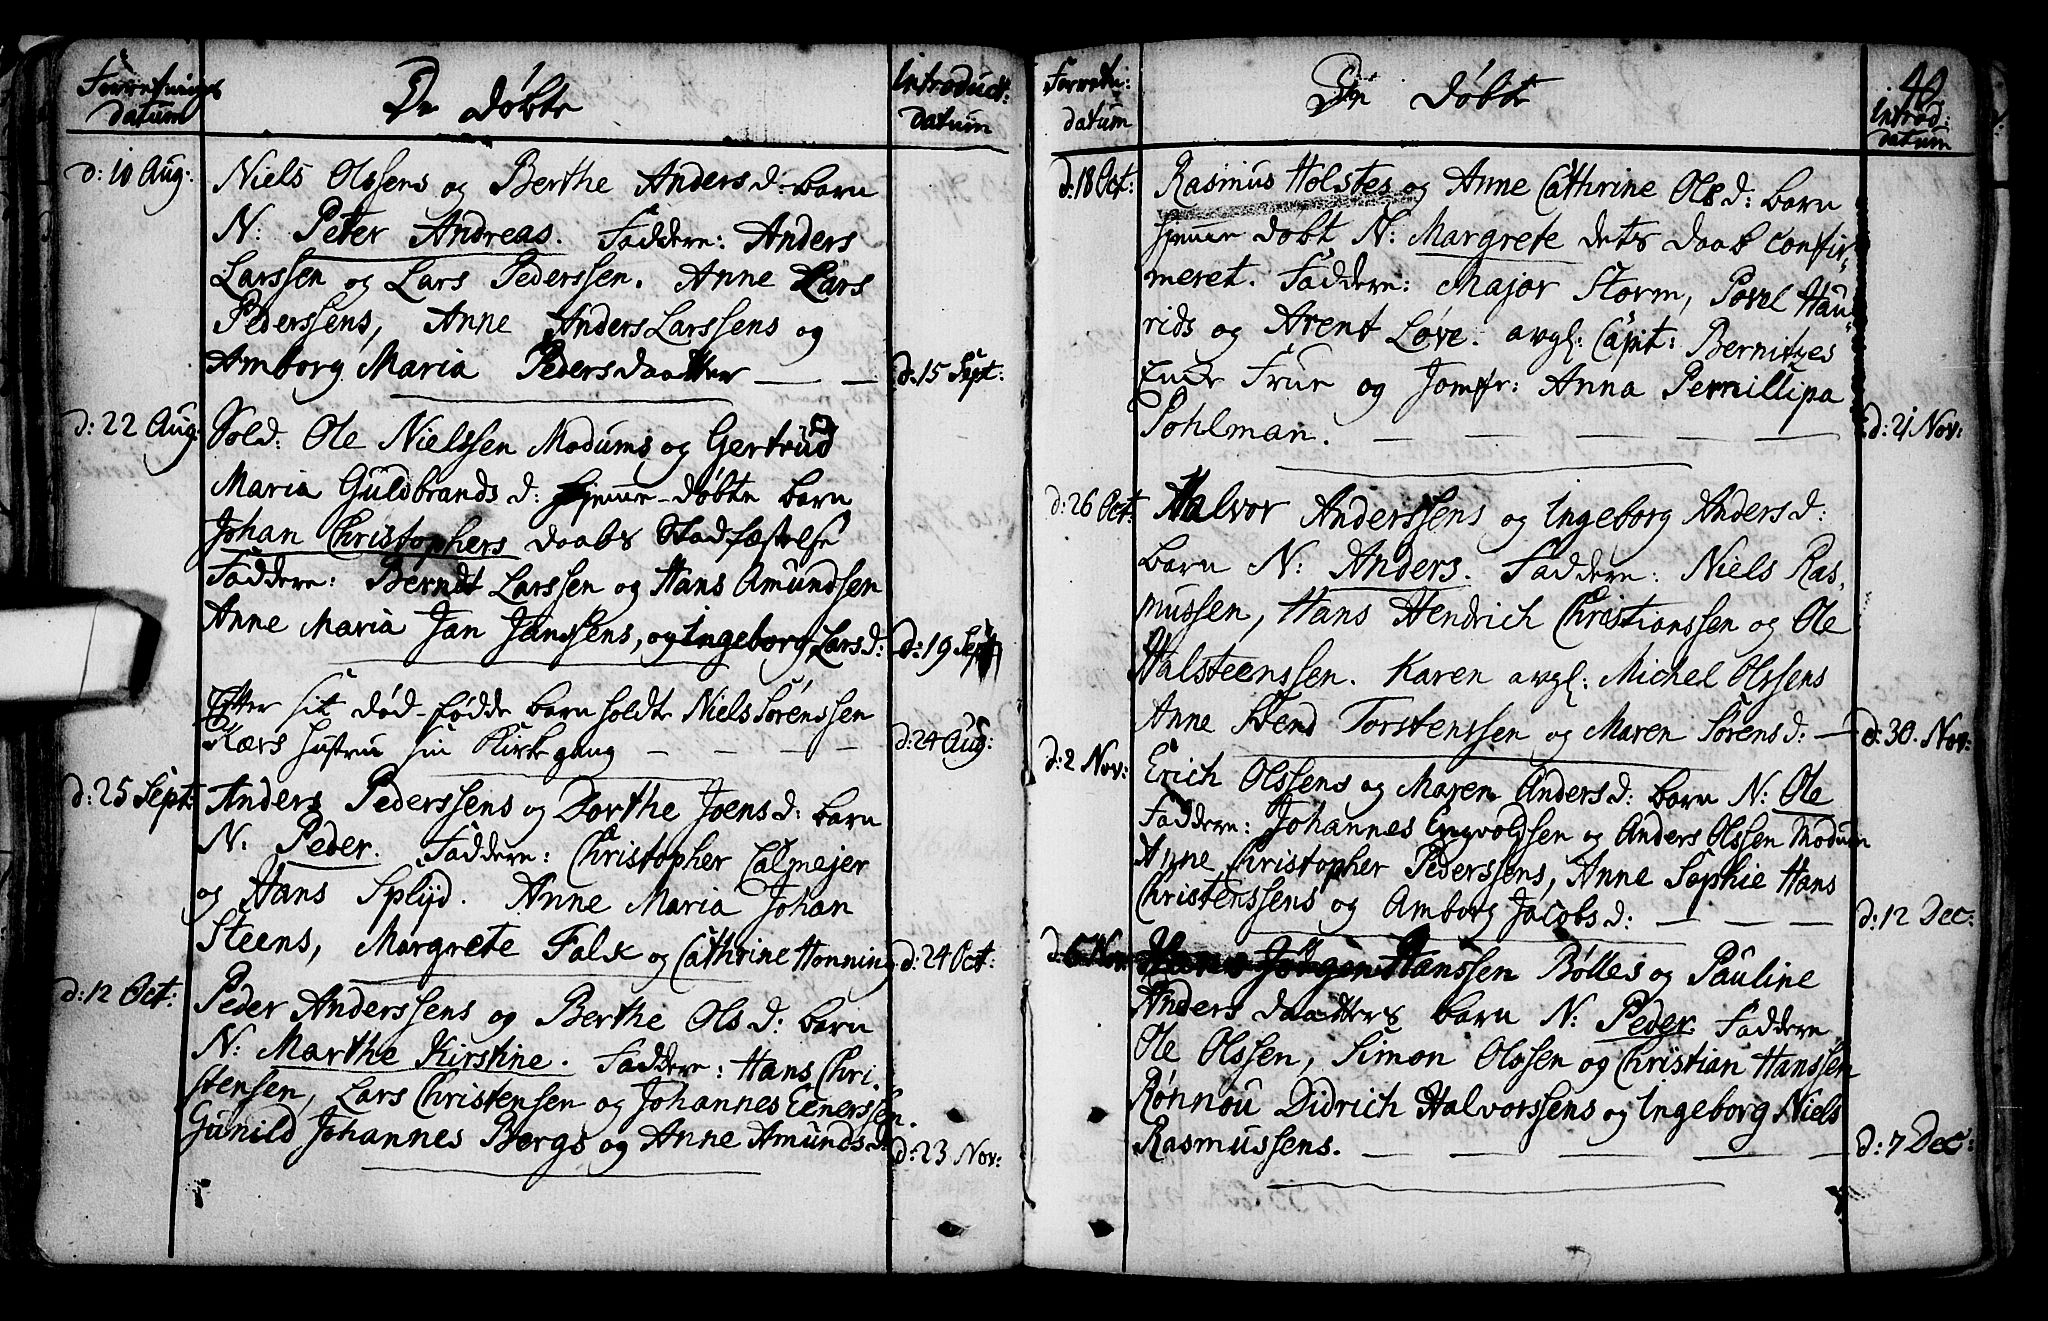 Forretnings
datum
De Døbte
Introduct:
datum
d: 10 Aug:
Niels Olssens og Berthe Anders d: barn
N: Peter Andreas. Faddere: Anders
Larssen og Lars Pederssen. Anne Lars
Pederssens, Anne Anders Larssens og
Amborg Maria Pedersdaatter — —
d: 15 Sept:
d: 22 Aug:
Sold: Ole Nielssen Modums og Gertrud
Maria Guldbrands d: hjemme-døbte barn
Johan Christophers daabs Stadfæstelse
Faddere: Berndt Larssen og Hans Amundsen
Anne Maria Jan Janssens, og Ingeborg Lars d:
d: 19 Sept
Efter sit død-fødde barn holdte Niels Sørenssen
Kærs hustru sin Kirkegang — — — —
d: 24 Aug:
d: 25 Sept:
Anders Pederssens og Dorthe Joens d: barn
N: Peder. Faddere: Christopher Calmejer
og Hans Splijd. Anne Maria Johan
Steens, Margrete Falk og Cathrine Honning
d: 24 Oct:
d: 12 Oct:
Peder Anderssens og Berthe Ols d: barn
N: Marthe Kirstine. Faddere: Hans Chri-
stensen, Lars Christensen og Johannes Einerssen.
Gunild Johannes Bergs og Anne Amunds d:
d: 23 Nov:
40
Forretn:
datum
De Døbte
Introd:
datum
d: 18 Oct:
Rasmus Holstes og Anne Cathrine Ols d: barn
hjemme døbt N: Margrete dets daab confir-
meret. Faddere: Major Storm, Povel Hau-
rids og Arent Løve. avgl: Capit: Bernitzes
Frue og Jomfr: Anna Pernillipa
Pohlman. — — — — —
d: 21 Nov:
d: 26 Oct:
Halvor Anderssens og Ingeborg Anders d:
barn N: Anders. Faddere: Niels Ras-
mussen, Hans Hendrich Christianssen og Ole
Halsteenssen. Karen avgl: Michel Olssens
Anne Torstenssen og Maren Sørens d: —
d: 30. Nov:
d: 2 Nov:
Erich Olssens og Maren Anders d: barn N: Ole
Faddere: Johannes Engvoldsen og Anders Olssen Modum
Anne Christopher Pederssens, Anne Sophie Hans
Christenssens og Amborg Jacobs d: — — —
d: 12 Dec:
d: 6 Nov
Hans Jørgen Hanssen Bølles og Pauline
Anders daatters barn N: Peder. Faddere
Ole Olssen, Simon Olssen og Christian Hanssen
Rønnou Didrich Halvorssens og Ingeborg Niels
Rasmussens. — — — — —
d: 7 Dec: